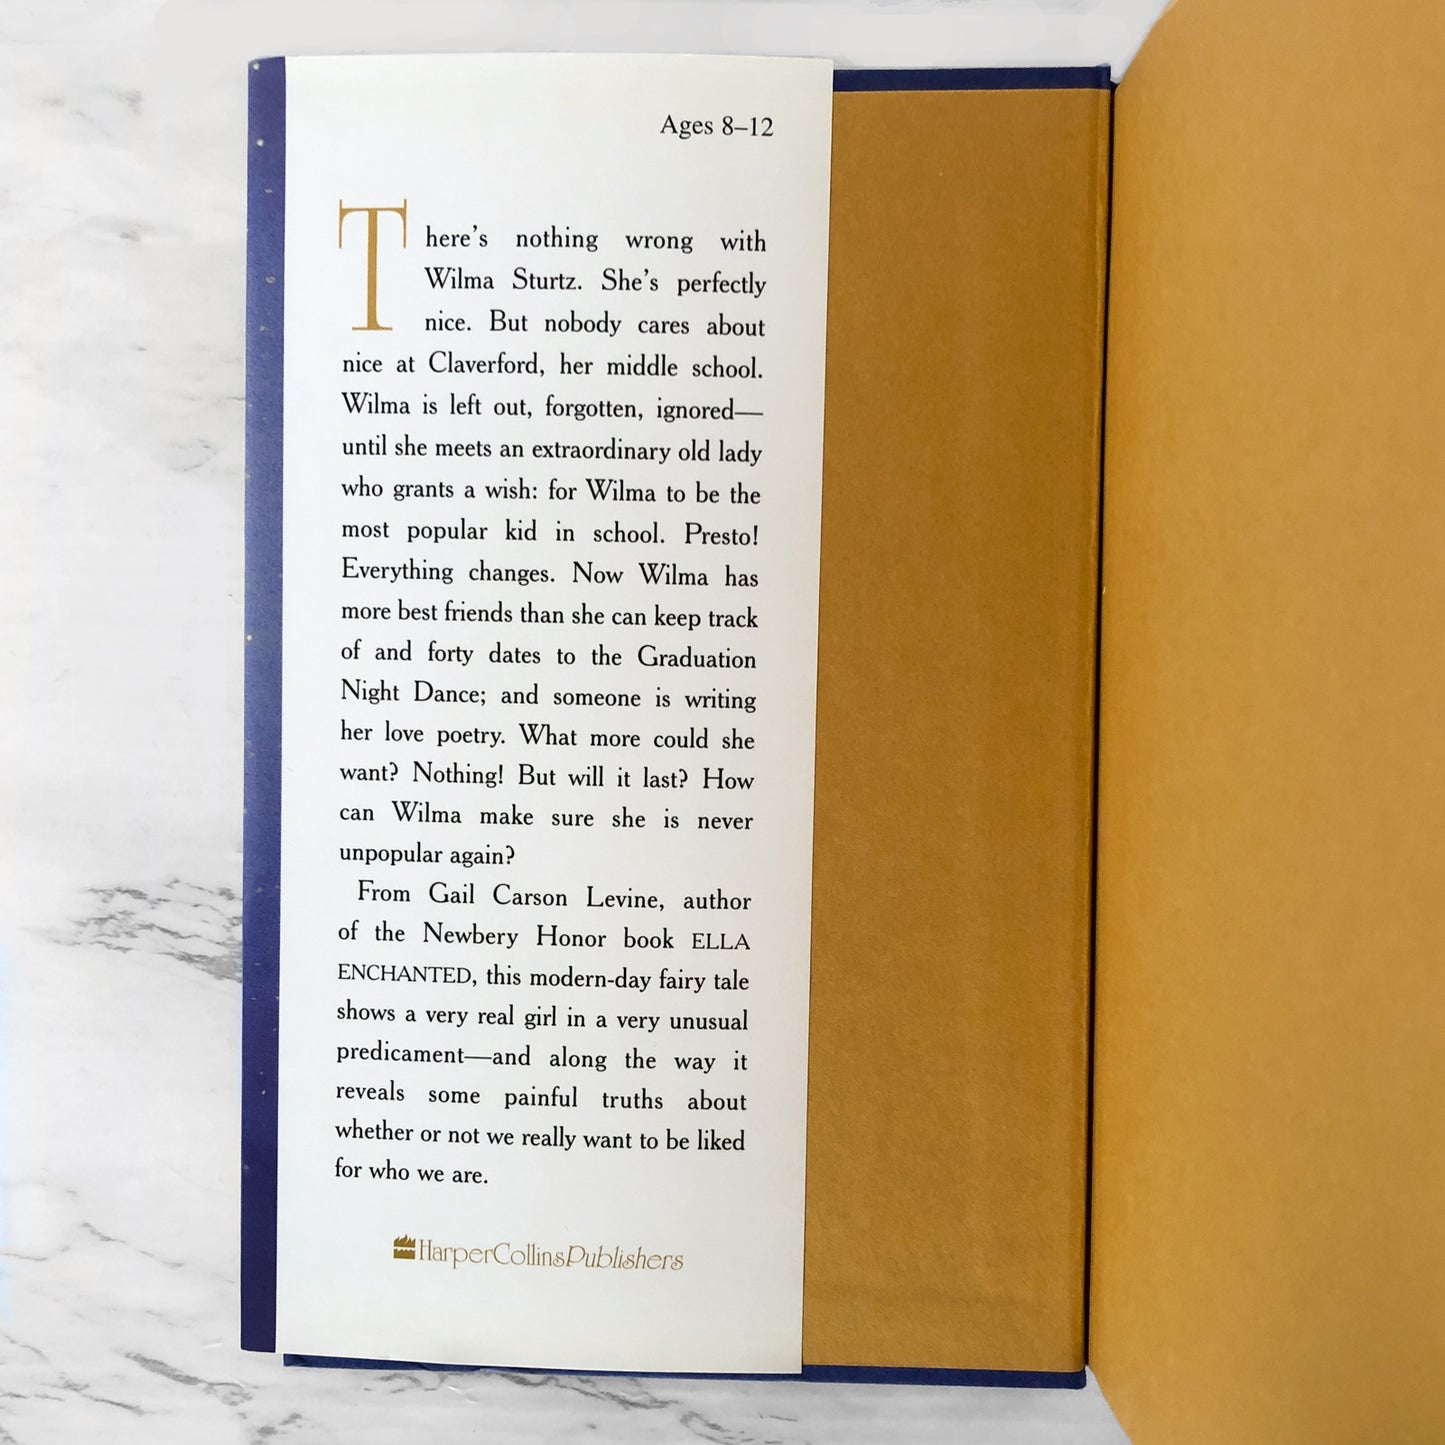 Ages 8–12
There's nothing wrong with
Wilma Sturtz. She's perfectly
nice. But nobody cares about
nice at Claverford, her middle school.
Wilma is left out, forgotten, ignored—
until she meets an extraordinary old lady
who grants a wish: for Wilma to be the
most popular kid in school. Presto!
Everything changes. Now Wilma has
more best friends than she can keep track
of and forty dates to the Graduation
Night Dance; and someone is writing
her love poetry. What more could she
want? Nothing! But will it last? How
can Wilma make sure she is never
unpopular again?
From Gail Carson Levine, author
of the Newbery Honor book ELLA
ENCHANTED, this modern-day fairy tale
shows a very real girl in a very unusual
predicament—and along the way it
reveals some painful truths about
whether or not we really want to be liked
for who we are.
HarperCollinsPublishers